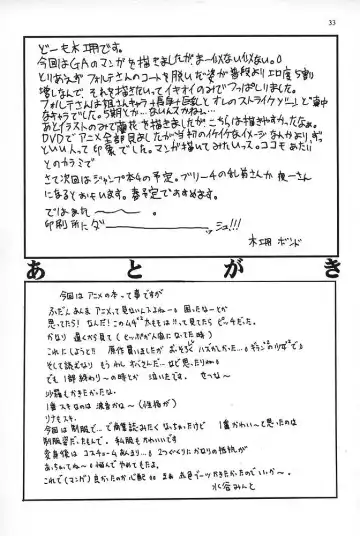 33
どーも木工用です。
今回はGAのマンガを描きましたがまー似ない似ない。
とりあえずフォルテさんのコートを脱いだ姿が普段よりエロ度5割
増しなんで、それを描きたいってイキオイのみでつっぱしりました。
フォルテさんは姐さんキャラ+長身+巨乳とオレのストライクゾーンど真中
なキャラでした。5期とか…ないんスかねぇ…
あとイラストのみで蘭花を描きましたが、こっちは描きやすかったなぁ。
DVDでアニメ全部見ましたが当初のイケイケなイメージなんかより ずっ
といい人って印象でした。マンガ描いてみたいっス。ココモあたり
とのカラミで
さて次回はジャンプ本4の予定。ブリーチの乱菊さんか夜一さん
になるとおもいます。春予定ですすめます。
ではまた〜。
印刷所にダーッシュ!!!
木工用ボンド
あとがき
今回はアニメの本って事ですが
ふだんあんまアニメって見ないんスよねー。困ったなーとか
思ってたら!なんだ!このムチ太ももは!!って見てたら ビッチだった。
かなり 遠くから見て
これにしよう!! 原作買いましたが おそろくハズかしかった…。
そして読むなり もうれつ
でも1部終わり〜の時とか 泣いたです。 せつな〜
沙羅もかきたかたな。
1番スキなのは 波音かな〜(性格が)
リナもスキ。
今回は 制服で…で商業誌みたく なっちゃたけど 1番かわい〜と思ったのは
制服姿だったもんで。私服もかわいいです
変身後は コスチュームあんまり…。2つぐくりにかなりの抵抗が
あっちゃてね〜。悩んでやめてもたよ。
これで(マンガ)良かったのか心配。まぁ お色ブーツかきたかったでいいか〜。
水谷みんと